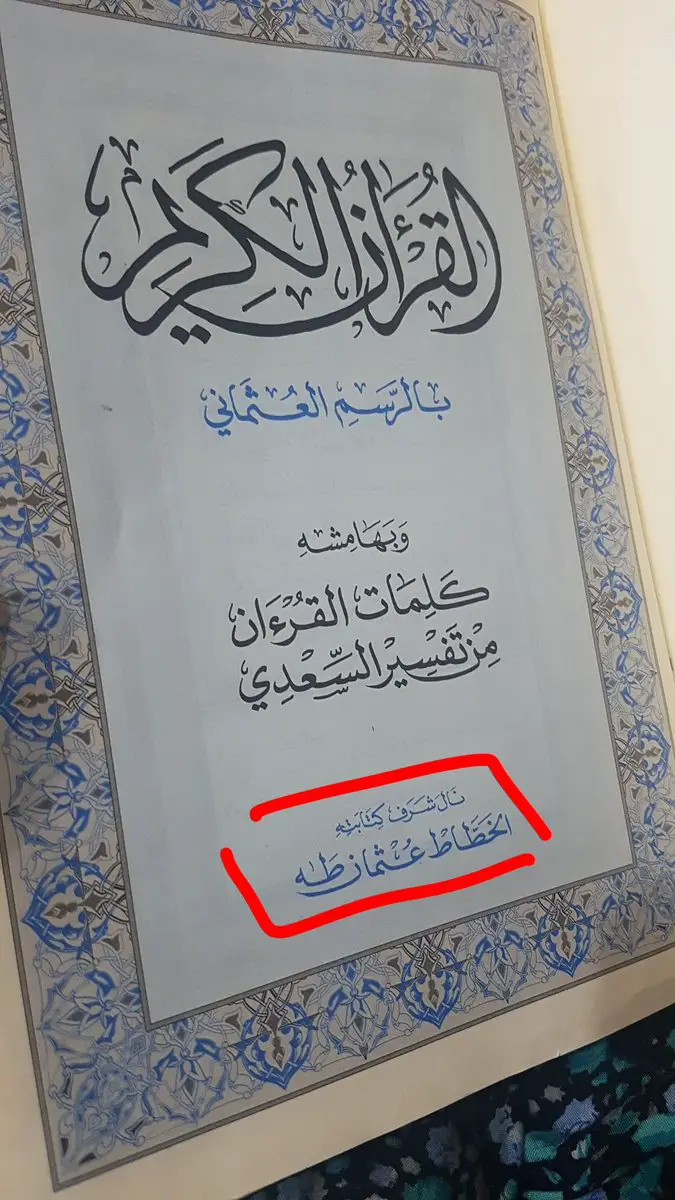 القُرْءَانُ الكَرِيْم
بِالرَّسمِ العُثمَاني
وَبهَامِشهِ
كَلِمَات القُرْءَان
مِنْ تَفْسِيْرِ السَّعْدِي
نَالَ شَرَفَ كِتَابَتِهِ
الخَطَّاط عُثْمَان طَهَ